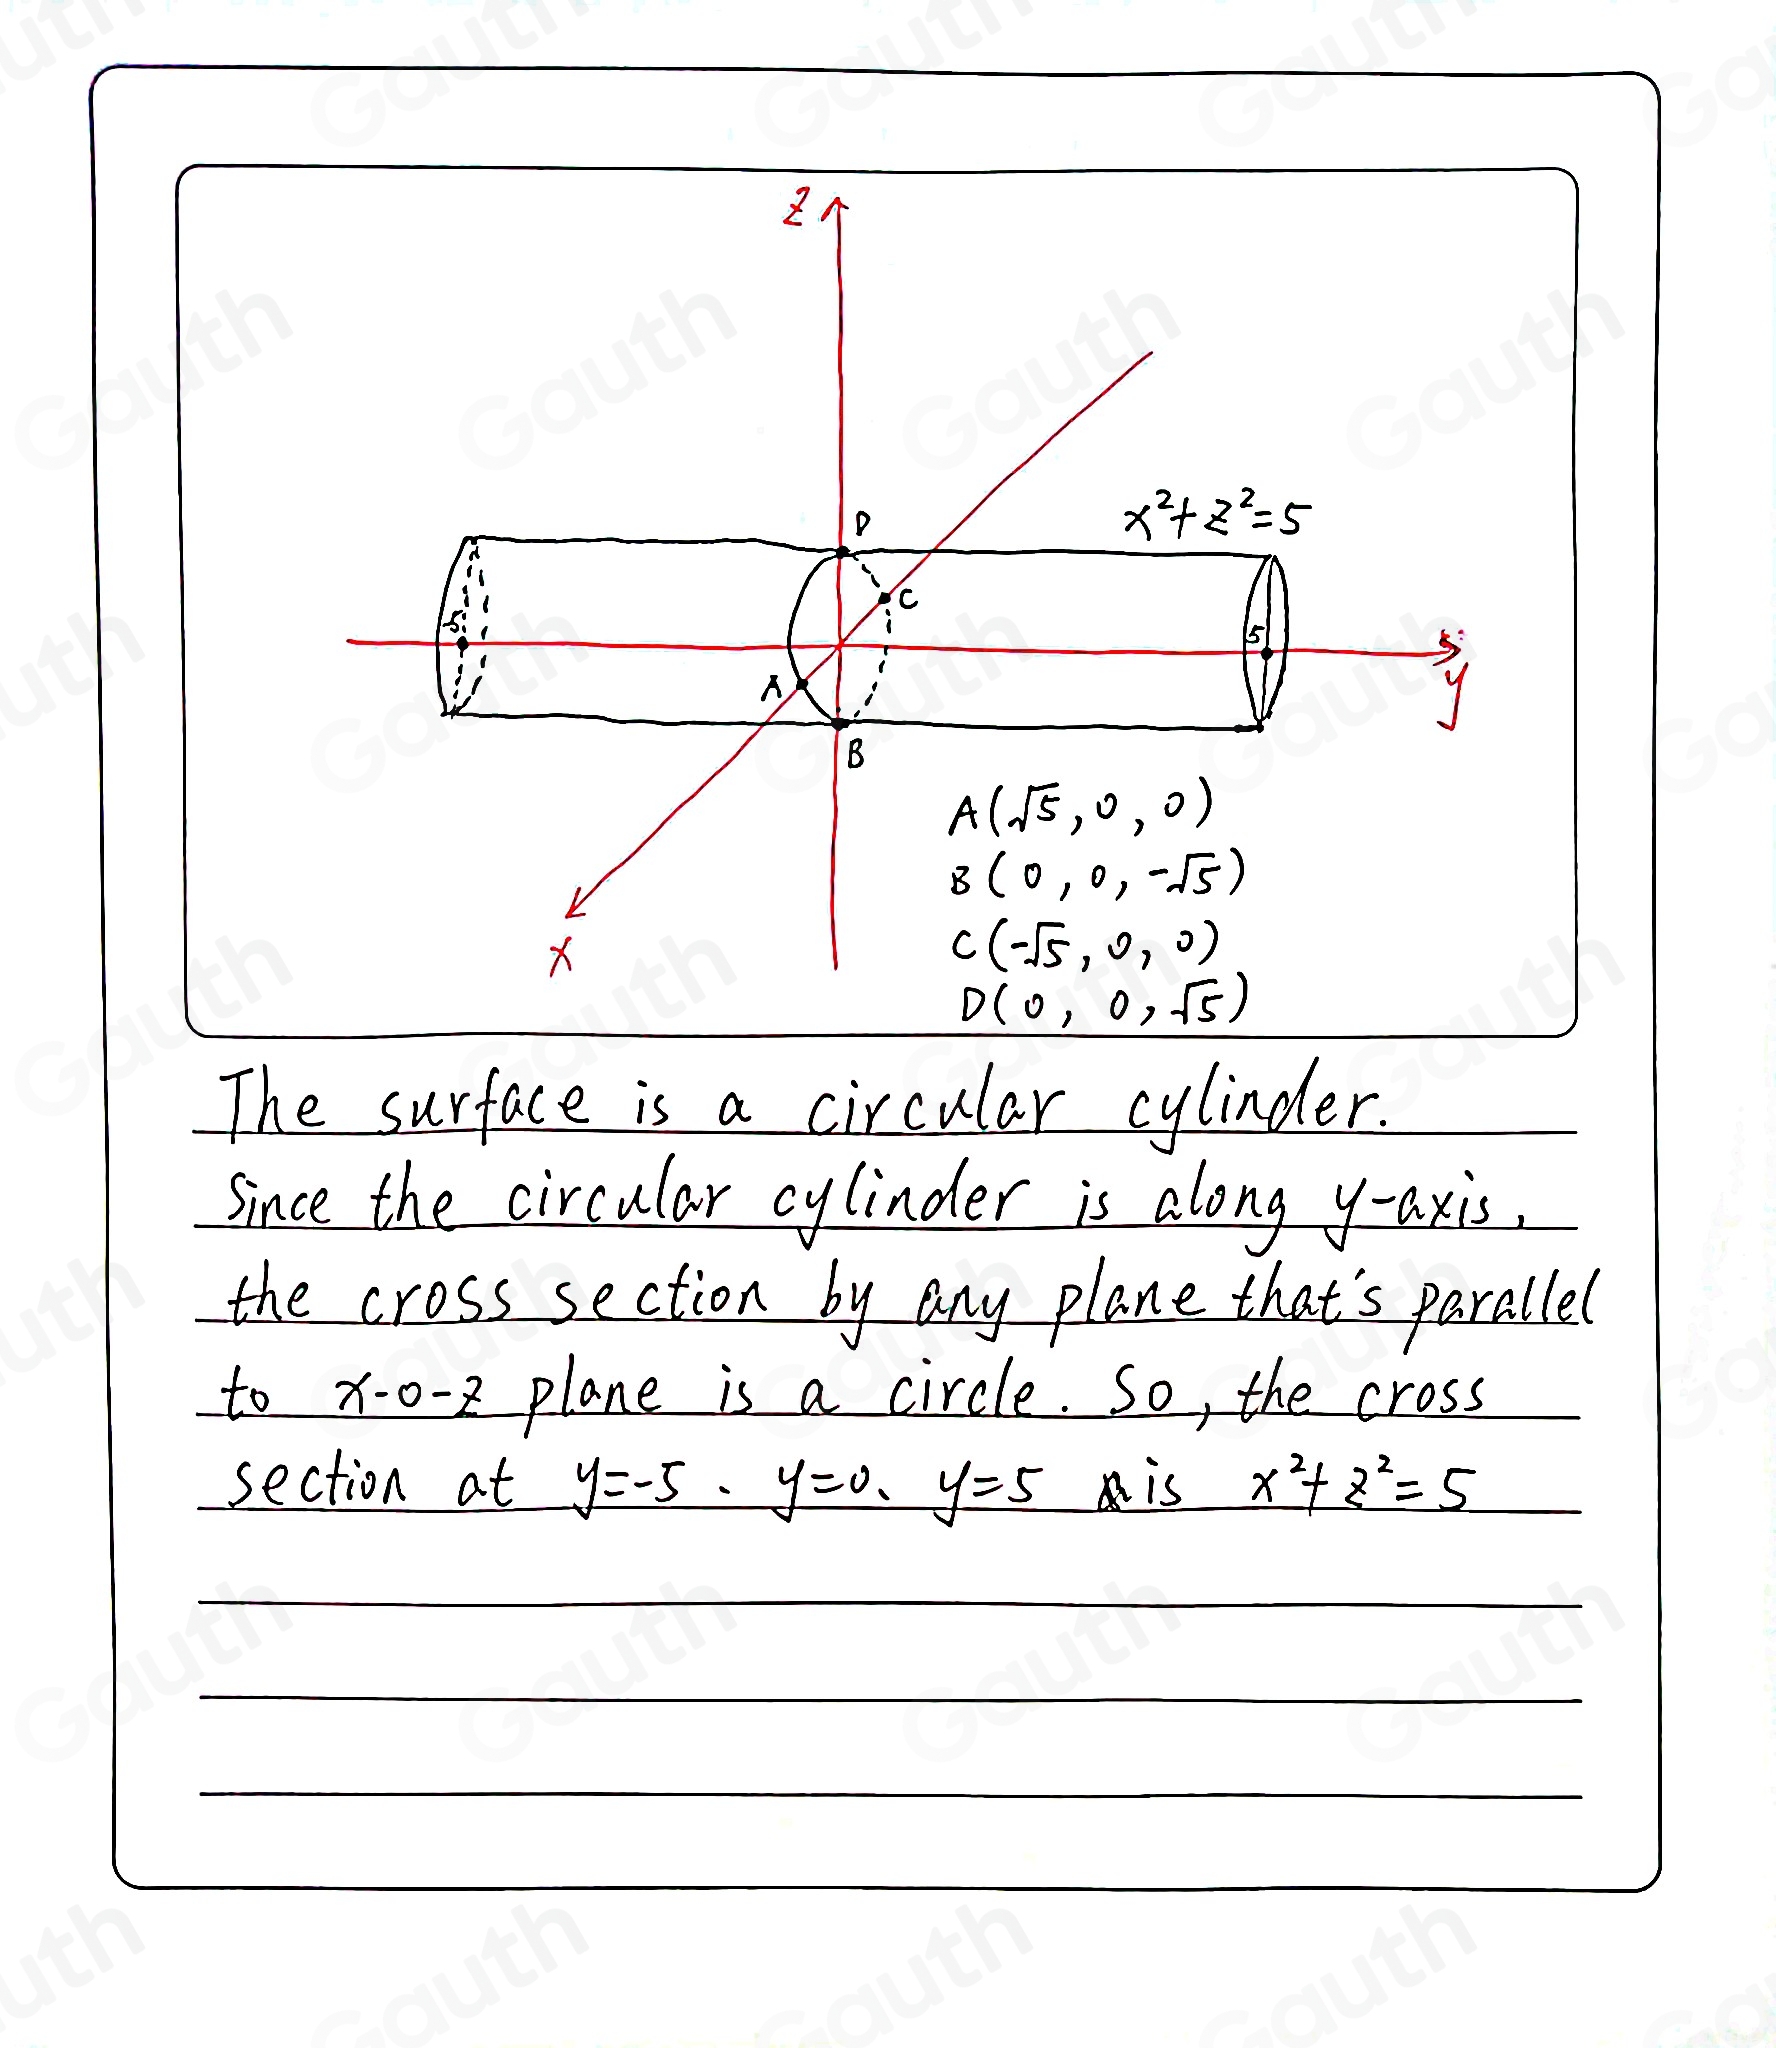 Z
D
x²+z²=5
C
-5
5
A
y
B
A(√5,0,0)
B(0,0,-√5)
C(-√5,0,0)
x
D(0,0,√5)
The surface is a circular cylinder.
Since the circular cylinder is along y-axis,
the cross section by any plane that's parallel
to x-o-z plane is a circle. So, the cross
section at y=-5、y=0、y=5 is x²+z²=5
Gauth